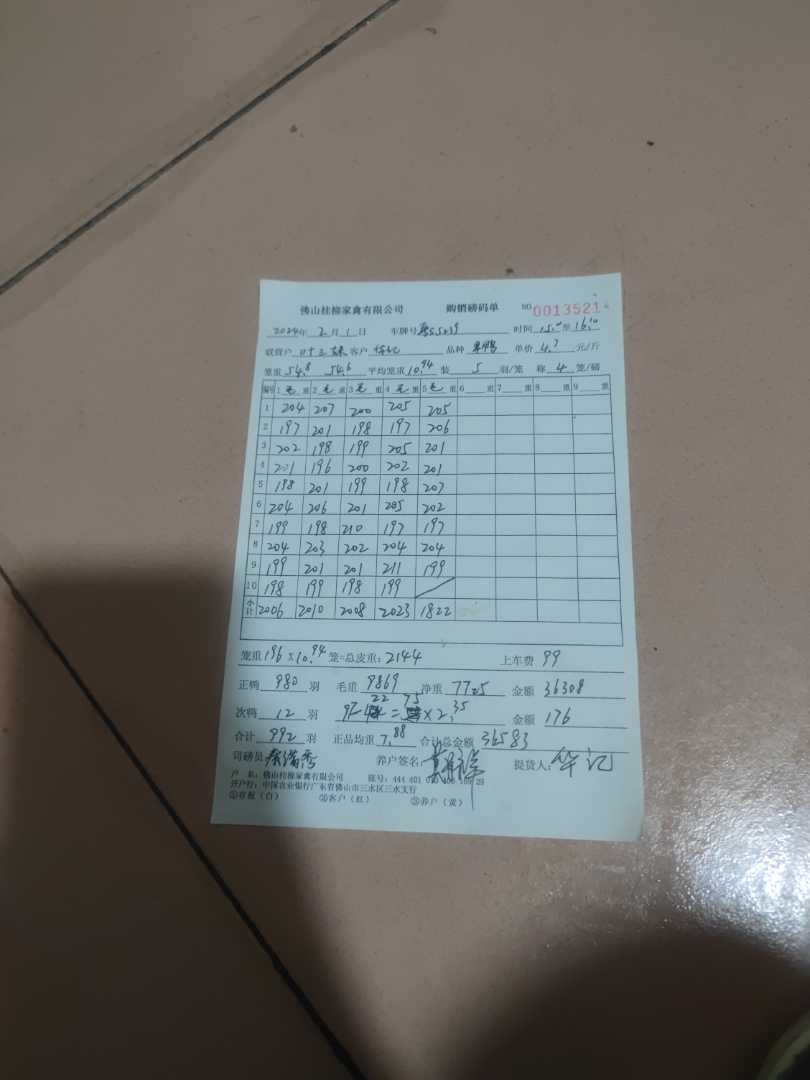 佛山桂柳家禽有限公司 购销磅码单 NO 0013521
2024年 2月 1日 车牌号 时间 15 至 16
客户 品种 单价 4.7 元/斤
笼重 54.8 54.6 平均笼重 10.94 装 5 羽/笼 称 4 笼/磅
编号 1毛重 2毛重 3毛重 4毛重 5毛重 6 重 7 重 8 重 9 重
1 204 207 200 205 205
2 197 201 198 197 206
3 202 198 199 205 201
4 201 196 200 202 201
5 198 201 199 198 207
6 204 206 201 205 202
7 199 198 210 197 197
8 204 203 202 204 204
9 199 201 201 211 199
10 198 199 198 199
小计 2006 2010 2008 2023 1822
笼重 196 × 10.94 笼=总皮重: 2144 上车费 99
正鸭 980 羽 毛重 9869 净重 7725 金额 36308
次鸭 12 羽 97- 22 = 75 × 2.35 金额 176
合计 992 羽 正品均重 7.88 合计总金额 36583
司磅员: 养户签名: 提货人: 华记
户 名: 佛山桂柳家禽有限公司 账号: 444 401
开户行: 中国农业银行广东省佛山市三水区三水支行
①存根(白) ②客户(红) ③养户(黄)